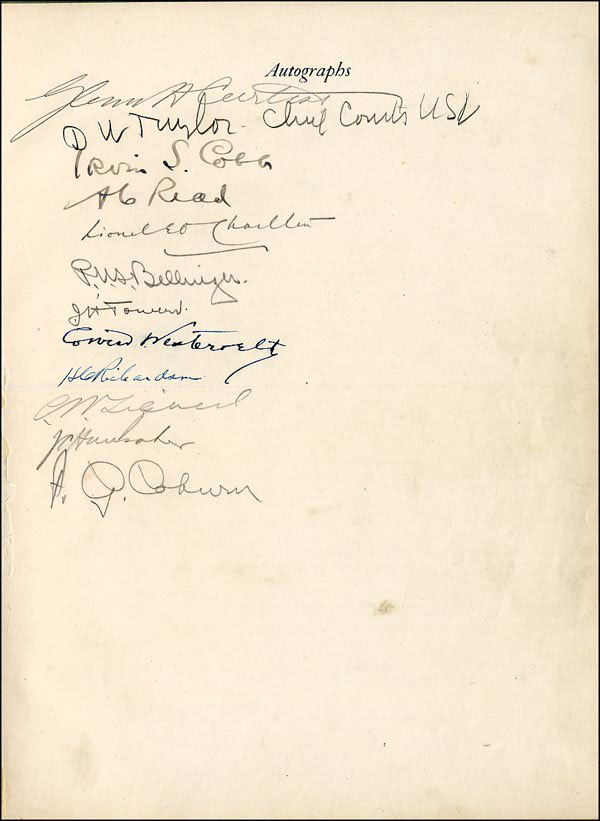 Autographs
Glenn H Curtiss
D W Taylor Chief Constr USN
Irvin S. Cobb
AC Read
Lionel
P.N.L. Bellinger.
JH Towers.
Conrad Westervelt
HC Richardson
JC Hunsaker
F. J. Coburn